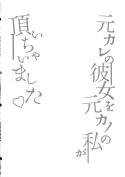 元カレの彼女を元カノの私が
頂いちゃいました♡